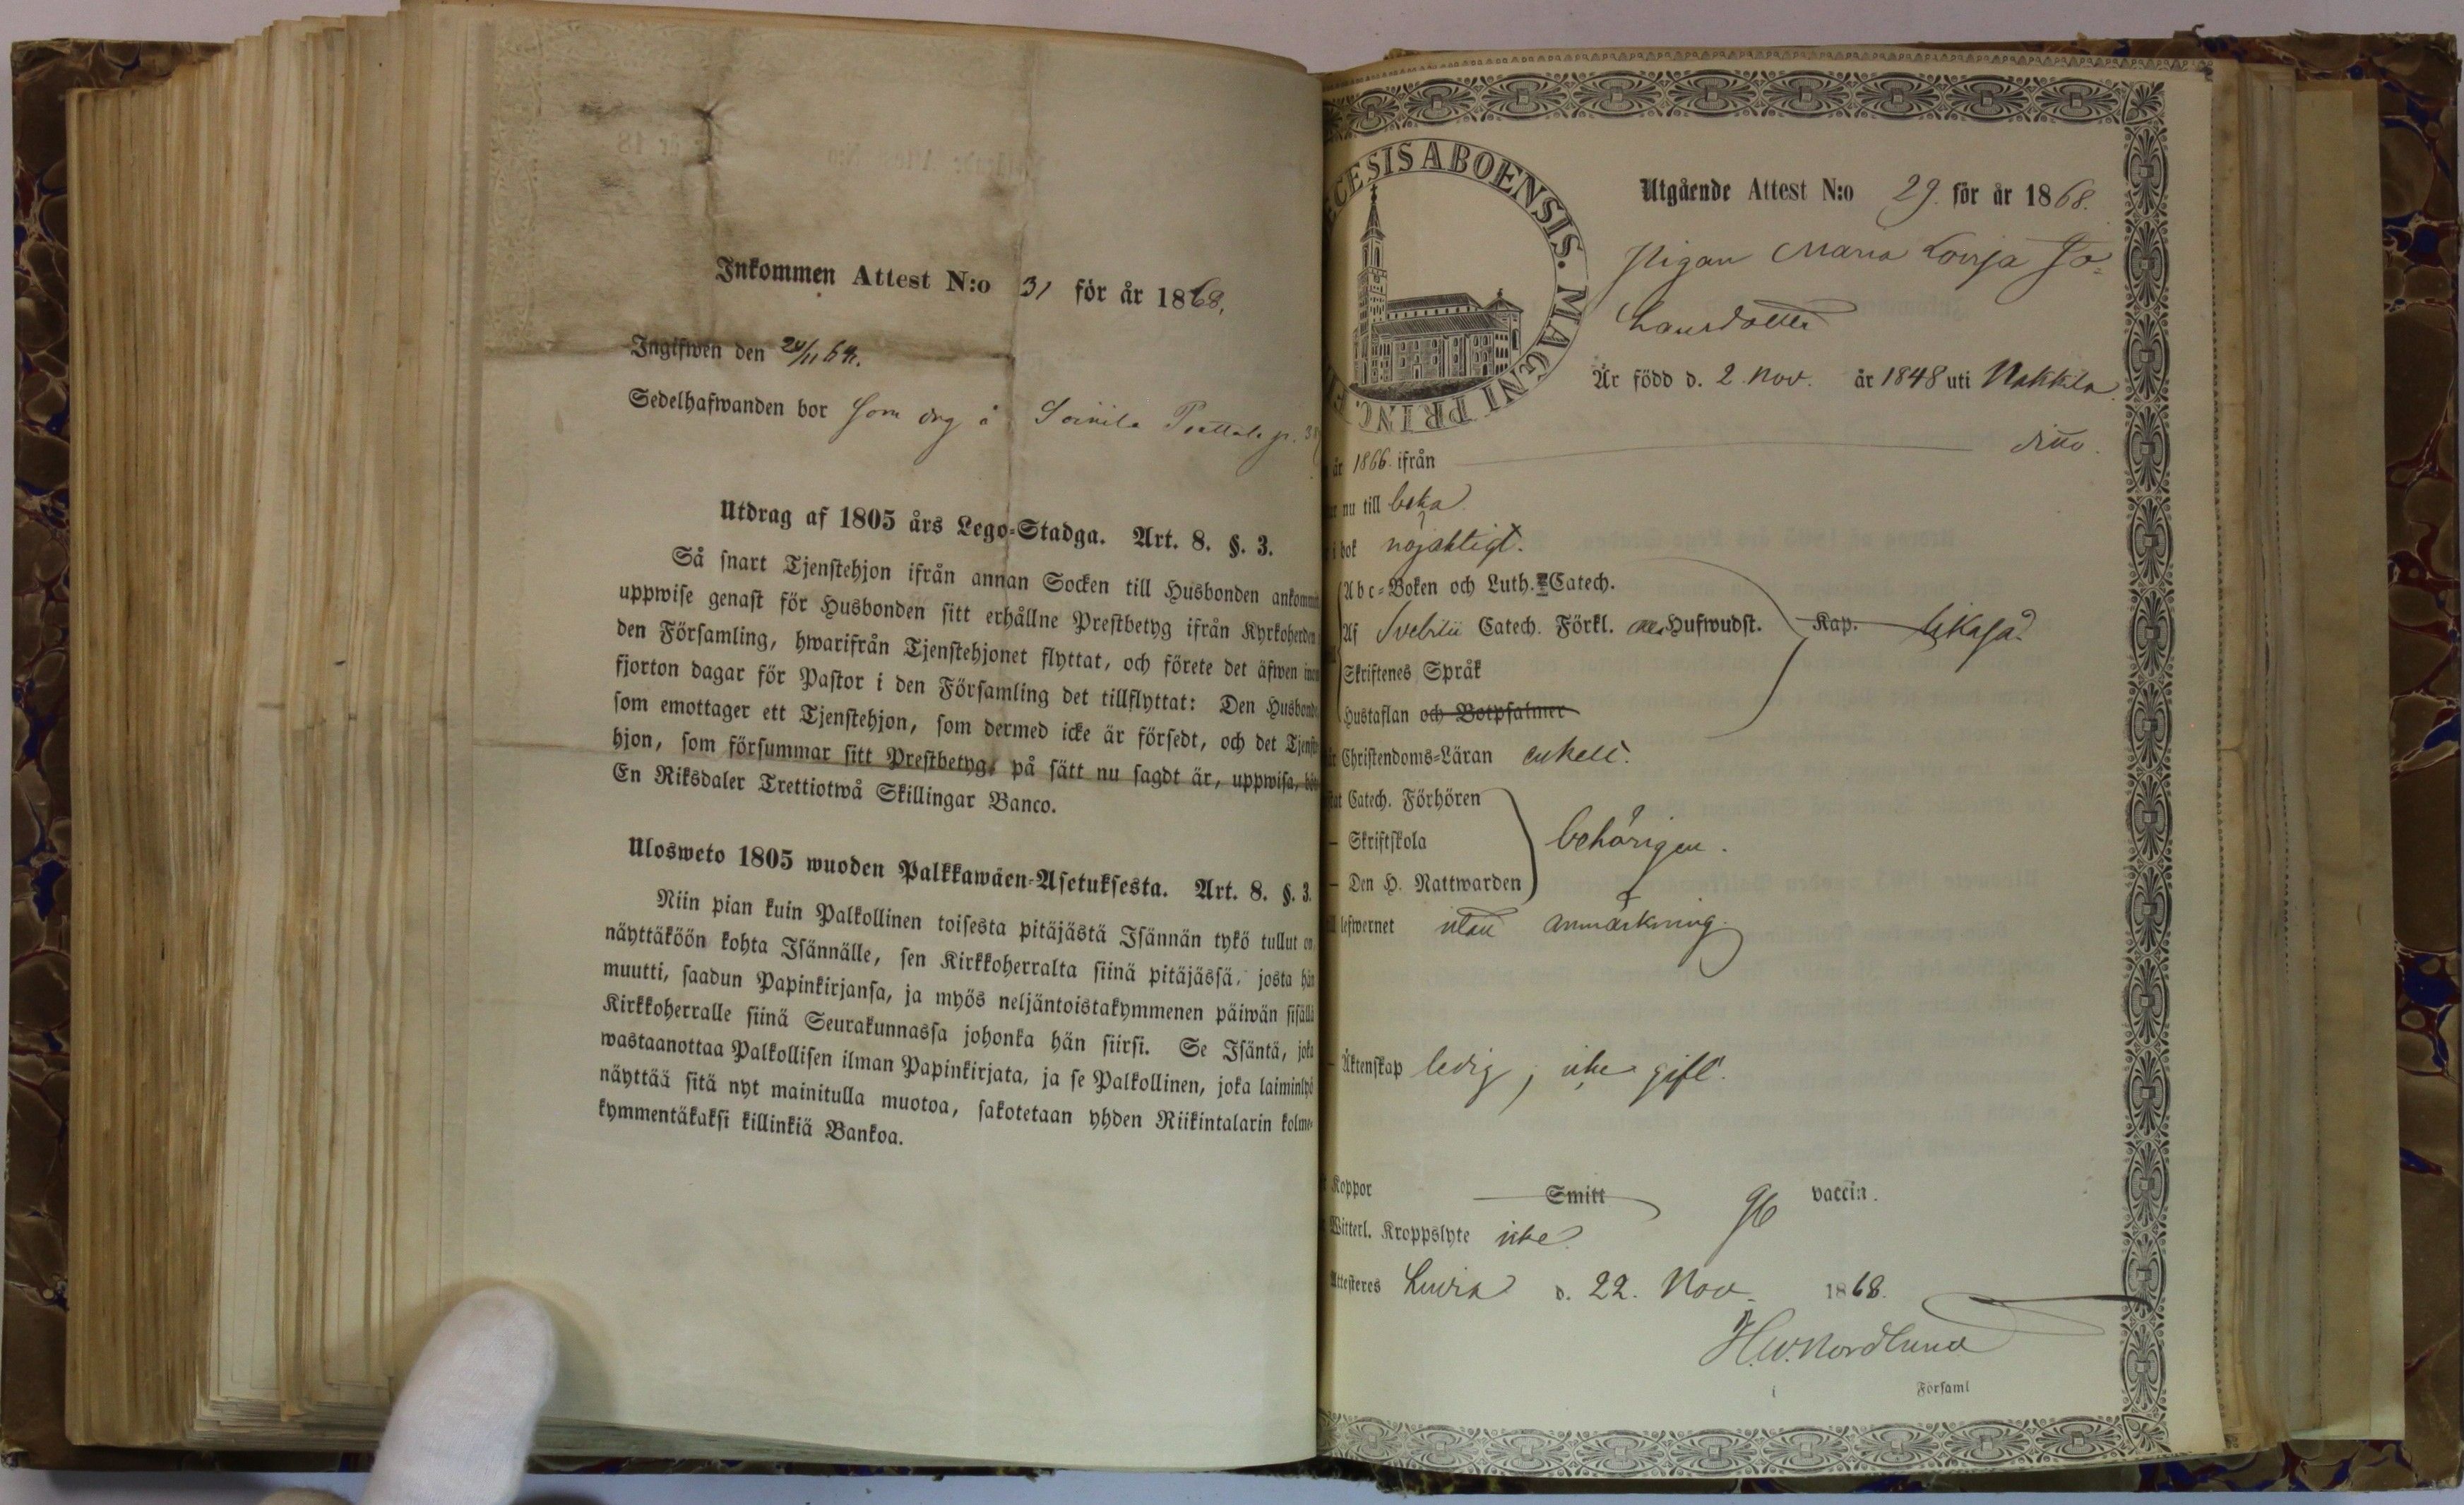 Inkommen Attest N:o 31 för år 1868.
Ingifwen den 24/11 68.
Sedelhafwanden bor som drg å Soinila
Utdrag af 1805 års Lego-Stadga. Art. 8. §. 3.
Så snart Tjenstehjon ifrån annan Socken till Husbonden ankommit
uppwise genast för Husbonden sitt erhållne Prestbetyg ifrån Kyrkoherden
den Församling, hwarifrån Tjenstehjonet flyttat, och förete det äfwen inom
fjorton dagar för Pastor i den Församling det tillflyttat: Den Husbonde
som emottager ett Tjenstehjon, som dermed icke är försedt, och det Tjenste-
hjon, som försummar sitt Prestbetyg, på sätt nu sagdt är, uppwisa, böte
En Riksdaler Trettiotwå Skillingar Banco.
Ulosweto 1805 wuoden Palkkawäen-Asetuksesta. Art. 8. §. 3.
Niin pian kuin Palkollinen toisesta pitäjästä Isännän tykö tullut on,
näyttäköön kohta Isännälle, sen Kirkkoherralta siinä pitäjässä, josta hän
muutti, saadun Papinkirjansa, ja myös neljäntoistakymmenen päiwän sisällä
Kirkkoherralle siinä Seurakunnassa johonka hän siirsi. Se Isäntä, joka
wastaanottaa Palkollisen ilman Papinkirjata, ja se Palkollinen, joka laiminlyö
näyttää sitä nyt mainitulla muotoa, sakotetaan yhden Riikintalarin kolme-
kymmentäkaksi killinkiä Bankoa.
CESIS ABOENSIS. MAGNI PRINC.
Utgående Attest N:o 29. för år 1868.
Pigan Maria Lovisa Jo-
hansdotter
Är född d. 2 Nov. år 1848 uti Nakkila
år 1866 ifrån ditto.
nu till
i bok nöjaktigt.
Abc-Boken och Luth. Catech.
Af Svebilii Catech. Förkl. Hufwudst. Kap. likaså
Skriftenes Språk
Hustaflan och Botpsalmer
Christendoms-Läran enkelt.
Catech. Förhören
— Skriftskola behörigen.
— Den H. Nattwarden
till lefwernet utan anmärkning
— Äktenskap ledig, icke gift.
Koppor Smitt vaccin.
Witterl. Kroppslyte icke
Attesteres Luvia d. 22. Nov. 1868.
H.W. Nordlund
i Församl